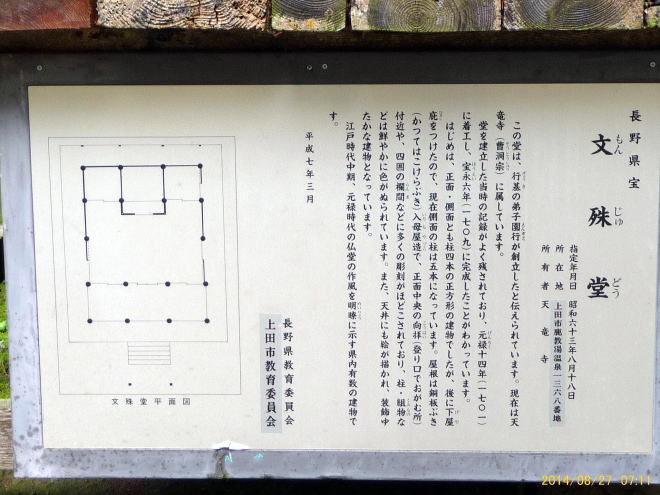 長野県宝
文殊堂
もんじゅどう
指定年月日 昭和六十三年八月十八日
所在地 上田市鹿教湯温泉一三六八番地
所有者 天竜寺
この堂は、行基の弟子園行が創立したと伝えられています。現在は天
竜寺（曹洞宗）に属しています。
堂を建立した当時の記録がよく残されており、元禄十四年（一七〇一）
に着工し、宝永六年（一七〇九）に完成したことがわかっています。
はじめは、正面・側面とも柱四本の正方形の建物でしたが、後に下屋
庇をつけたので、現在側面の柱は五本になっています。屋根は銅板ぶき
（かつてはこけらぶき）入母屋造で、正面中央の向拝（登り口でおがむ所）
付近や、四囲の欄間などに多くの彫刻がほどこされており、柱・組物な
どは鮮やかに色がぬられています。また、天井にも絵が描かれ、装飾ゆ
たかな建物となっています。
江戸時代中期、元禄時代の仏堂の作風を明瞭に示す県内有数の建物で
す。
平成七年三月
長野県教育委員会
上田市教育委員会
文殊堂平面図
2014/08/27 07:11